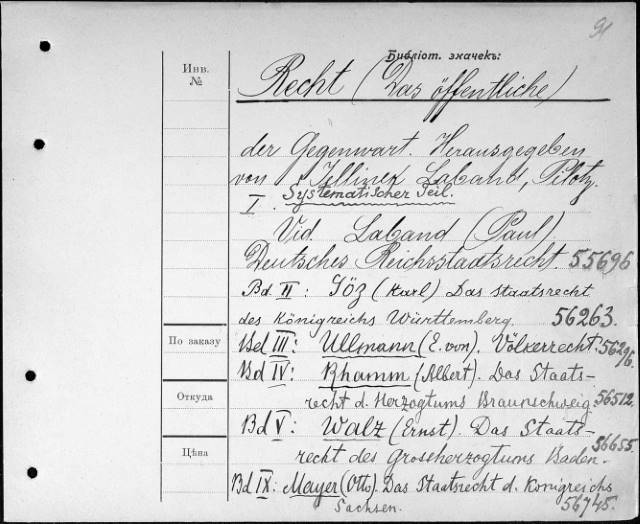 91
Библіот. значекъ:
Инв.
№
Recht (Das öffentliche)
der Gegenwart. Herausgegeben
von Jellinek Laband, Piloty.
I. Systematischer Teil.
Vid. Laband (Paul).
Deutsches Reichsstaatsrecht. 55696
Bd II: Göz (Karl) Das Staatsrecht
des Königreichs Württemberg. 56263.
По заказу
Bd III: Ullmann (E. von). Völkerrecht. 56296.
Bd IV: Rhamm (Albert). Das Staats-
Откуда
recht d. Herzogtums Braunschweig 56512.
Bd V: Walz (Ernst). Das Staats-
Цѣна
recht des Grosherzogtums Baden. 56655.
Bd IX: Mayer (Otto). Das Staatsrecht d. Königreichs
Sachsen. 56745.